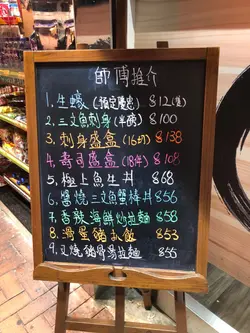 師傅推介
1. 生蠔 (預定優惠) $12(隻)
2. 三文魚刺身 (半磅) $100
3. 刺身盛盒 (16切) $138
4. 壽司盛盒 (18件) $108
5. 極上魚生丼 $68
6. 醬燒三文魚蟹棒丼 $56
7. 香辣海鮮炒拉麵 $58
8. 滑蛋豬扒飯 $53
9. 叉燒豬骨湯拉麵 $55